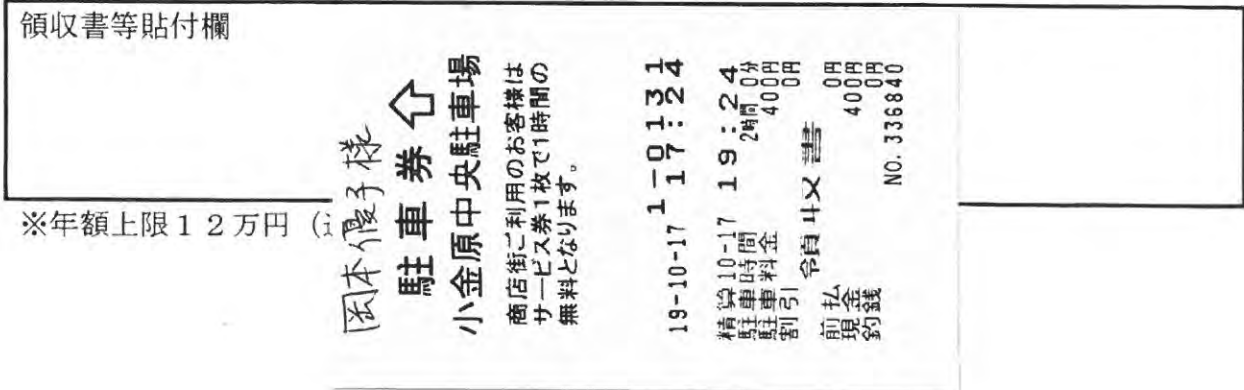 領収書等貼付欄
※年額上限12万円（
岡本優子様
駐車券
小金原中央駐車場
商店街ご利用のお客様は
サービス券1枚で1時間の
無料となります。
1-0131
19-10-17 17:24
精算10-17 19:24
駐車時間 2時間 0分
駐車料金 400円
割引 0円
領収書
前払 0円
現金 400円
釣銭 0円
NO.336840